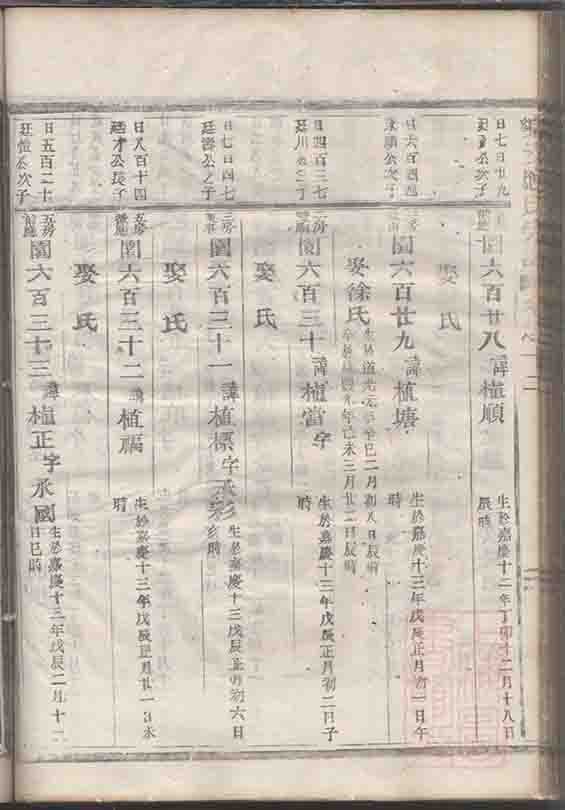 日七百廿九
公次子
園六百廿八諱植順
生於嘉慶十二年丁卯十二月十八日
辰時
娶氏
日六百四
公次子
園六百廿九諱植塘
生於嘉慶十三年戊辰正月初一日午
時
娶徐氏
生於道光元年
巳二月初八日辰時
元年己未三月廿二日辰時
日四百三七
廷川公之子
園六百三十諱植當字
生於嘉慶十三年戊辰正月初二日子
時
娶氏
日七百四七
公之子
三房
園六百三十一諱植標字承彩
生於嘉慶十三戊辰正月初六日
亥時
娶氏
日八百十四
廷才公長子
五房
園六百三十二諱植福
生於嘉慶十三年戊辰正月廿一日未
時
娶氏
日五百二十
廷愷公次子
五房
園六百三十三諱植正字承國
生於嘉慶十三年戊辰二月十二
日巳時